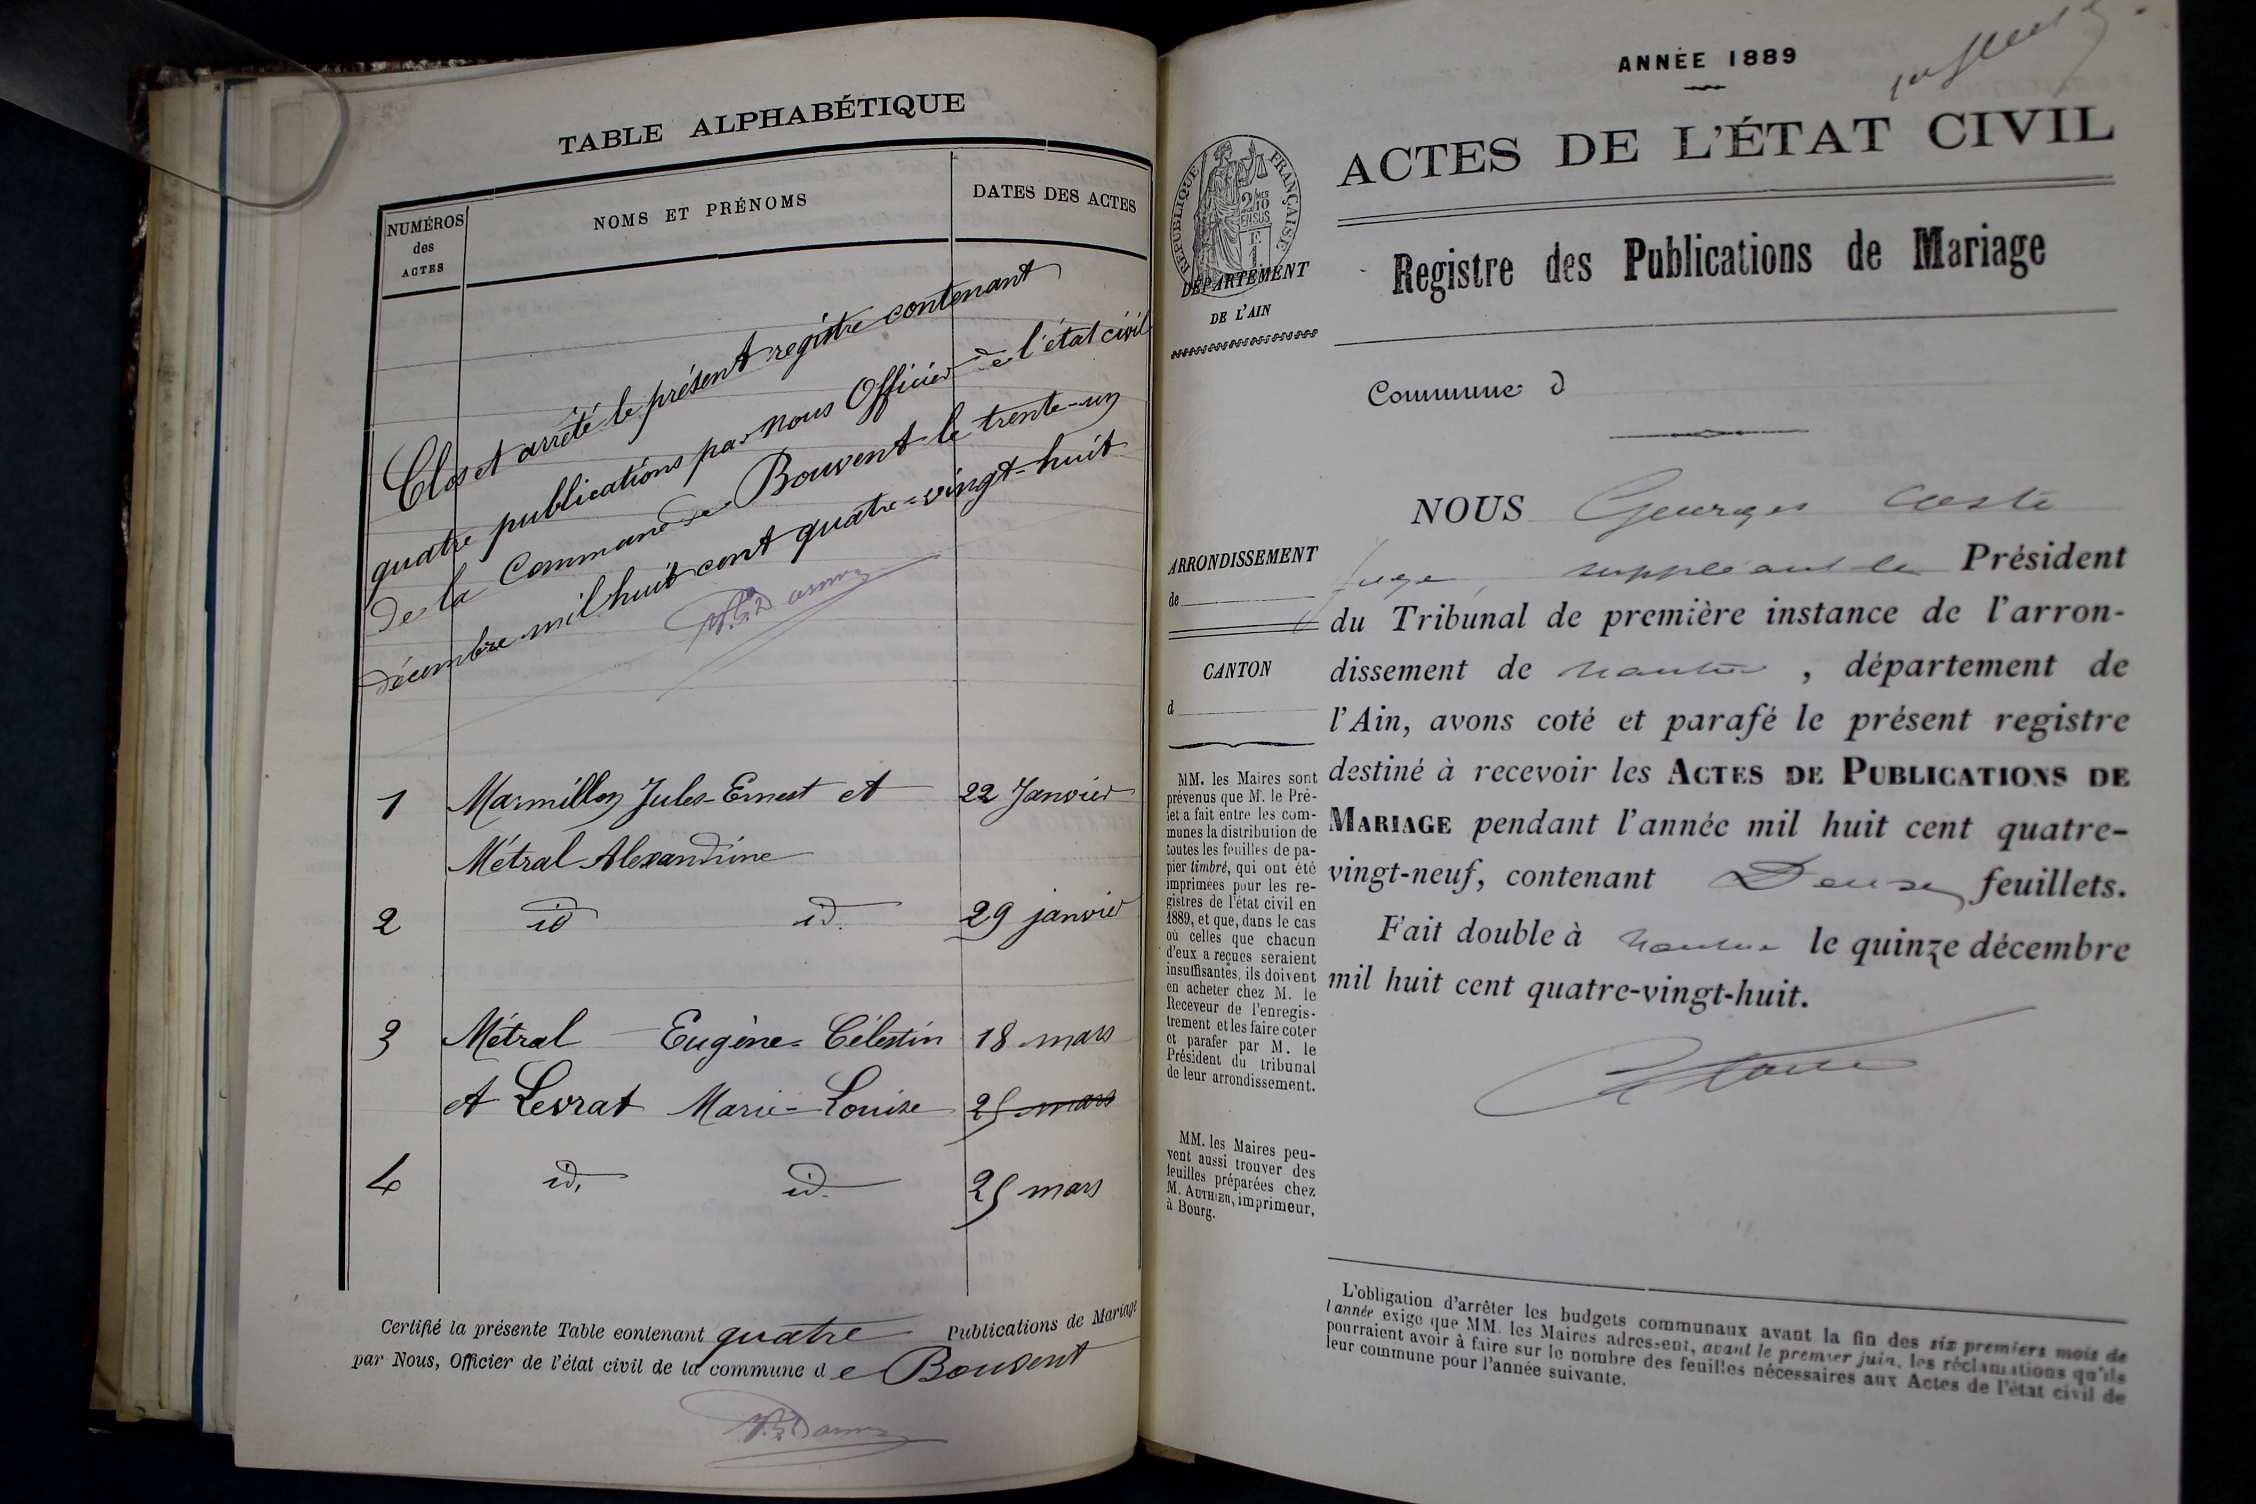 TABLE ALPHABÉTIQUE
NUMÉROS
des
ACTES
NOMS ET PRÉNOMS
DATES DES ACTES
Clos et arrêté le présent registre contenant
quatre publications par nous Officier de l'état civil
de la Commune de Bouvent le trente-un
décembre mil huit cent quatre-vingt-huit
1 Marmillon Jules-Ernest et 22 Janvier
Métral Alexandrine
2 id id. 29 janvier
3 Métral Eugène-Célestin 18 mars
et Levrat Marie-Louise 25 mars
4 id. id. 25 mars
Certifié la présente Table contenant quatre Publications de Mariage
par Nous, Officier de l'état civil de la commune de Bouvent
ANNÉE 1889
ACTES DE L'ÉTAT CIVIL
RÉPUBLIQUE FRANÇAISE
2/10
EN SUS
DÉPARTEMENT
DE L'AIN
Registre des Publications de Mariage
Commune d
NOUS Georges Coste
ARRONDISSEMENT
de
juge suppléant le Président
du Tribunal de première instance de l'arron-
dissement de Nantua, département de
l'Ain, avons coté et parafé le présent registre
destiné à recevoir les ACTES DE PUBLICATIONS DE
MARIAGE pendant l'année mil huit cent quatre-
vingt-neuf, contenant Deux feuillets.
Fait double à Nantua le quinze décembre
mil huit cent quatre-vingt-huit.
CANTON
d
MM. les Maires sont
prévenus que M. le Pré-
fet a fait entre les com-
munes la distribution de
toutes les feuilles de pa-
pier timbré, qui ont été
imprimées pour les re-
gistres de l'état civil en
1889, et que, dans le cas
où celles que chacun
d'eux a reçues seraient
insuffisantes, ils doivent
en acheter chez M. le
Receveur de l'enregis-
trement et les faire coter
et parafer par M. le
Président du tribunal
de leur arrondissement.
MM. les Maires peu-
vent aussi trouver des
feuilles préparées chez
M. AUTHIER, imprimeur,
à Bourg.
L'obligation d'arrêter les budgets communaux avant la fin des six premiers mois de
l'année exige que MM. les Maires adressent, avant le premier juin, les réclamations qu'ils
pourraient avoir à faire sur le nombre des feuilles nécessaires aux Actes de l'état civil de
leur commune pour l'année suivante.